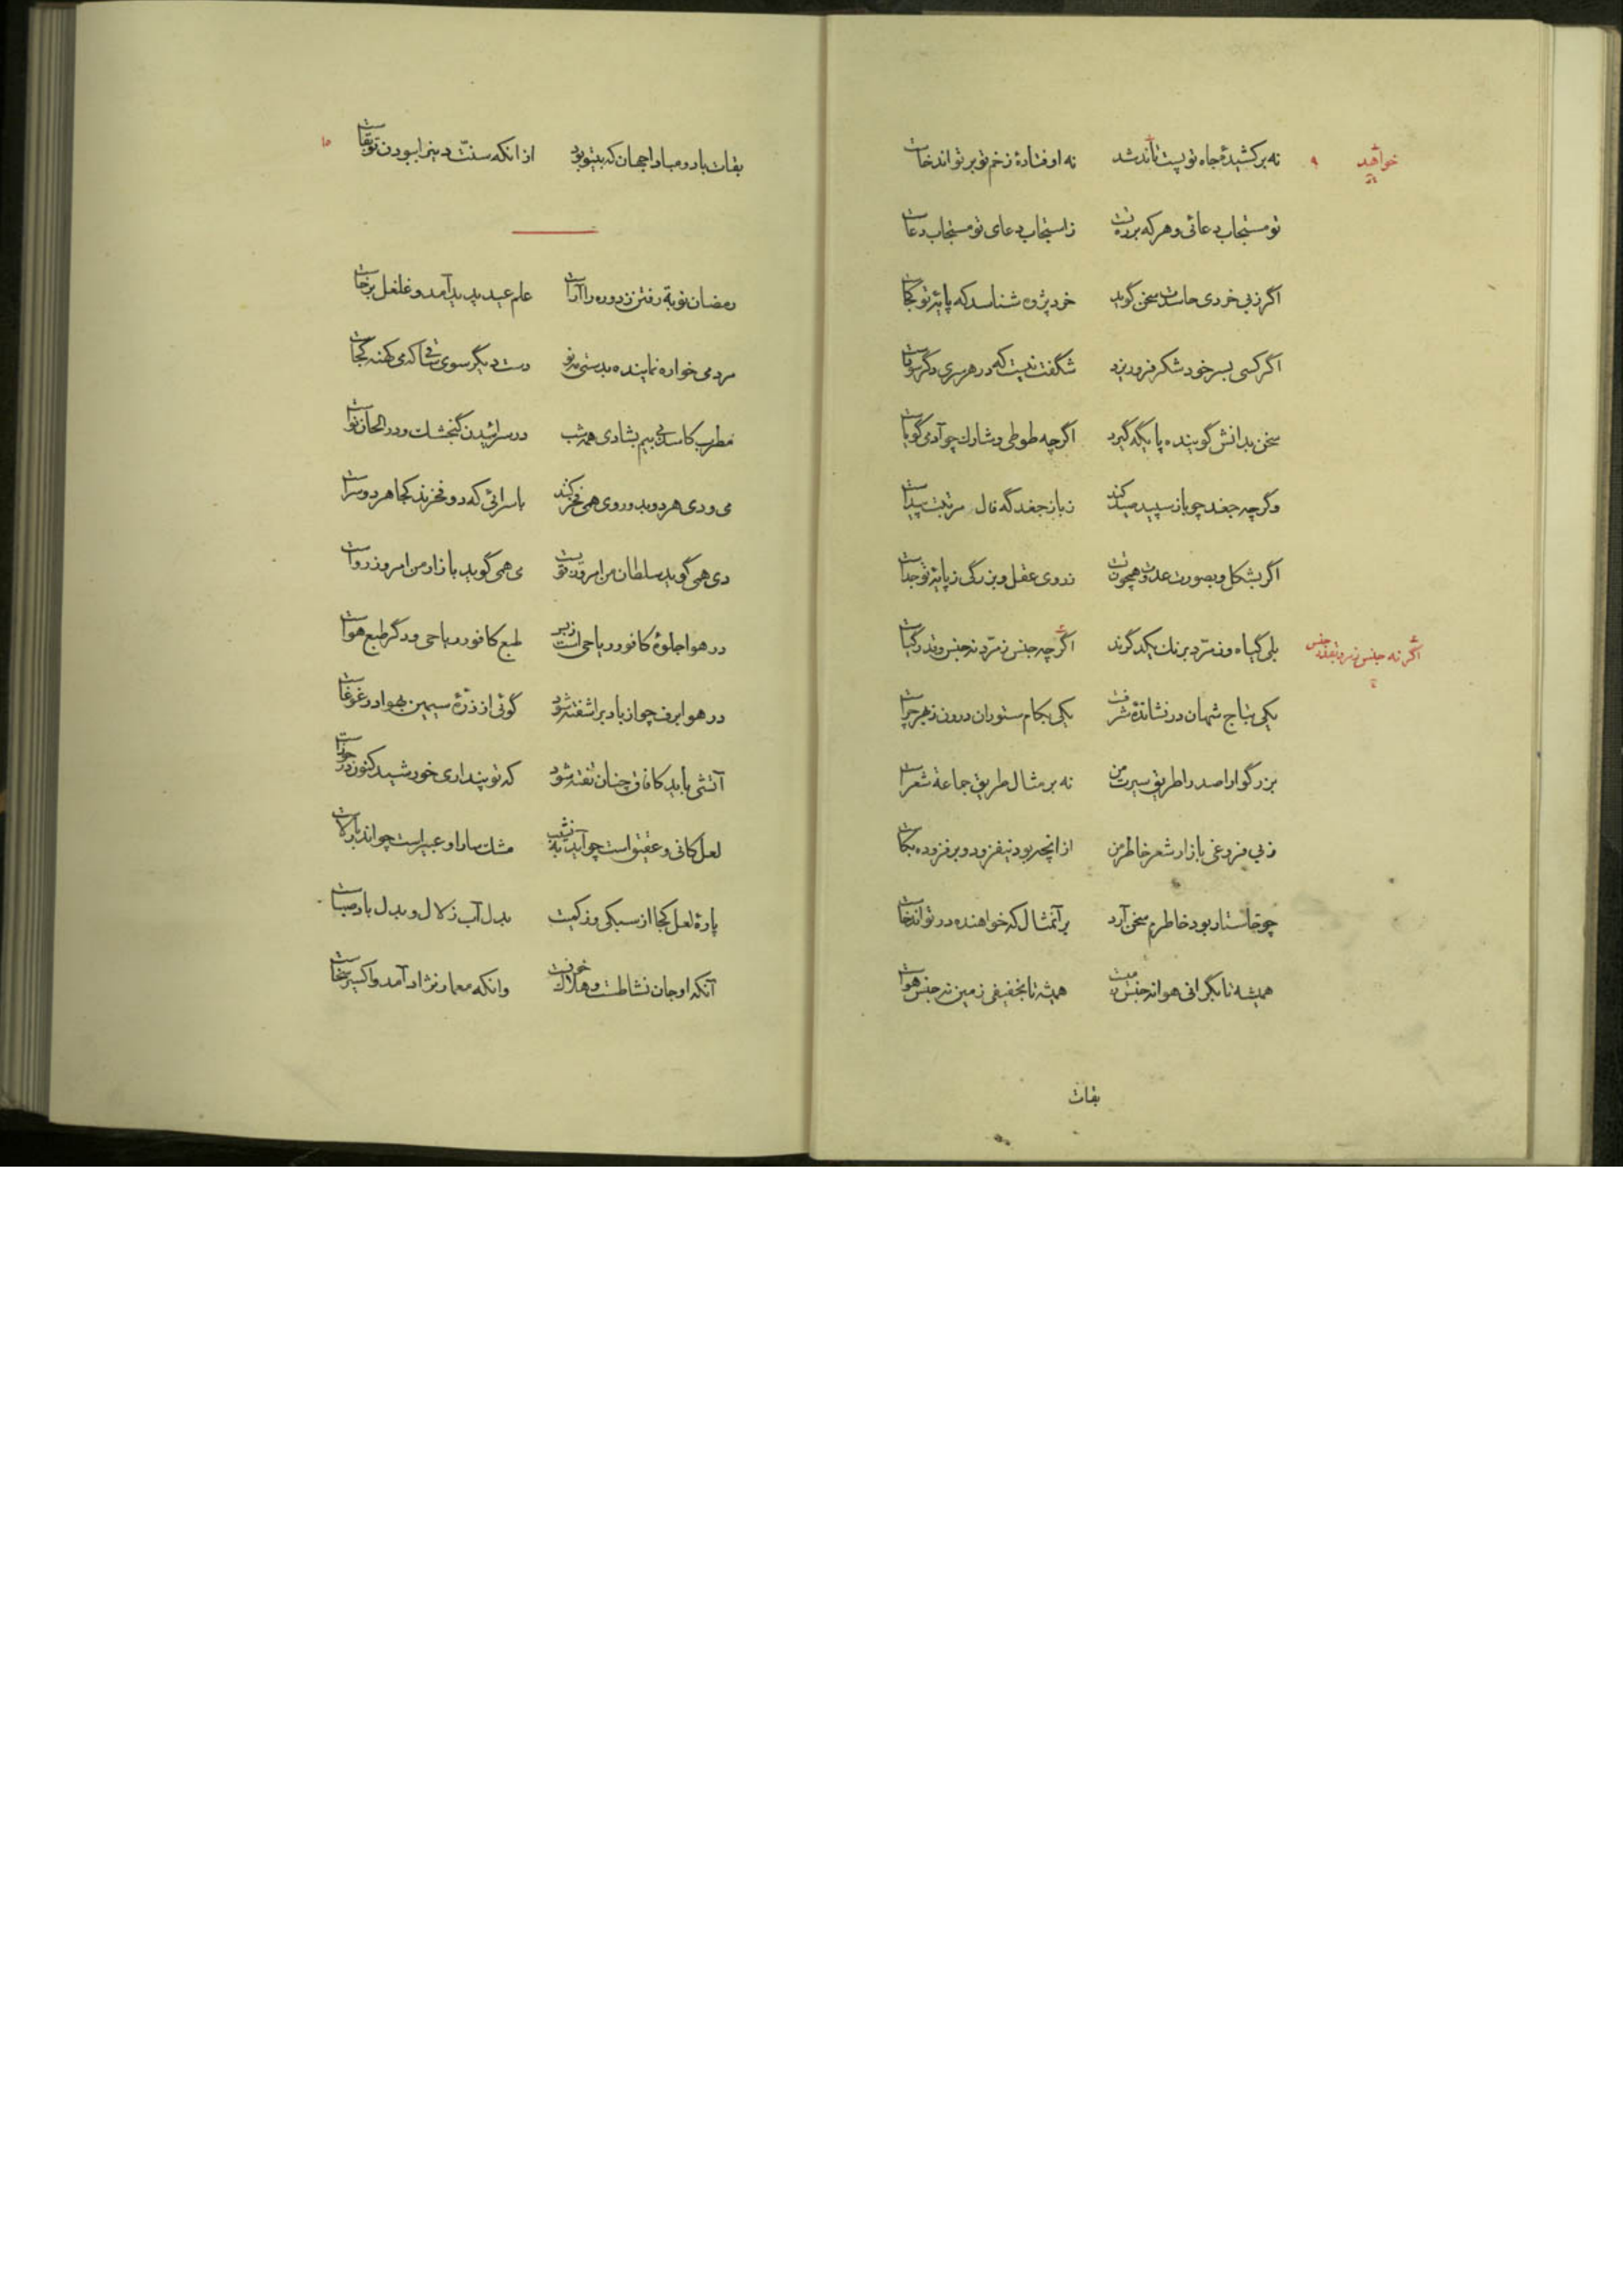 خواهید ۹ نه برکشیدهٔ جاه تو پست تاند شد نه اوفتادهٔ زخم تو بر تواند خاست
تو مستجاب دعائی و هر که بر در تست ز استجاب دعای تو مستجاب دعاست
اگر ز بی خردی حاسدت سخن گوید خرد پژوه شناسد که پایهٔ تو کجاست
اگر کسی بسر خود شکر فرو ریزد شگفت نیست که در هر سری دگر سوداست
سخن بدانش گوینده پایگه گیرد اگرچه طوطی و شارک چو آدمی گویاست
وگرچه جغد چو باز سپید صید کند ز باز جغد گه فال مرتبت پیداست
اگر بشکل و بصورت عدوت همچون تست ز روی عقل و بزرگی ز پایهٔ تو جداست
بلی گیاه و زمرّد برنگ یکدگرند اگرچه جنس زمرّد نه جنس و قدر گیاست
اگر نه جنس زمرد بقدر جنس
یکی بتاج شهان در نشاندهٔ شرفست یکی بکام ستوران درون ز بهر چراست
بزرگوارا صدرا طریق سیرت من نه بر مثال طریق جماعهٔ شعراست
ز بی فروغی بازار شعر خاطر من از انچه بود نیفزود و بر فزوده بکاست
چو خاستار بود خاطرم سخن آرد بر آنمثال که خواهنده در تواند خاست
همیشه تا بگرانی هوا نه جنس زمیست همیشه تا بخفیفی زمین نه جنس هواست
بقات
بقات باد و مباد اجهان که بیتو بود از انکه سنّت دینرا ببودن تو بقاست ۱۵
رمضان نوبة رفتن زد و ره را آراست علم عید پدید آمد و غلغل برخاست
مرد می خواره نماینده بدستی مه نو دست دیگر سوی ساقی که می کهنه کجاست
مطرب کاسد بی بیم بشادی همه شب در سرائیدن گنجشک و در الحان نواست
می و دی هر دو بدو روی همی فخر کند با سرائی که دو فخرند کجا هر دو سراست
دی همی گوید سلطان من امروز قویست می همی گوید بازار من امروز رواست
در هوا جلوهٔ کافور ریاحی است زبر طبع کافور ریاحی و دگر طبع هواست
در هوا برف چو از باد بر اشفته شود گوئی از ذرّهٔ سیمین بهوا در غوغاست
آتشی باید کافاق چنان تفته شود که تو پنداری خورشید کنون در جوزاست
لعل کانی و عقیق است چو آید به نشیب مشک سارا و عبیر است چو اندر بالاست
پارهٔ لعل کجا از سبکی و ز کیت بدل آب زلال و بدل باد صباست
آنکه او جان نشاطست و هلاک حزنست وانکه معمار نژاد آمد و اکسیر سخاست